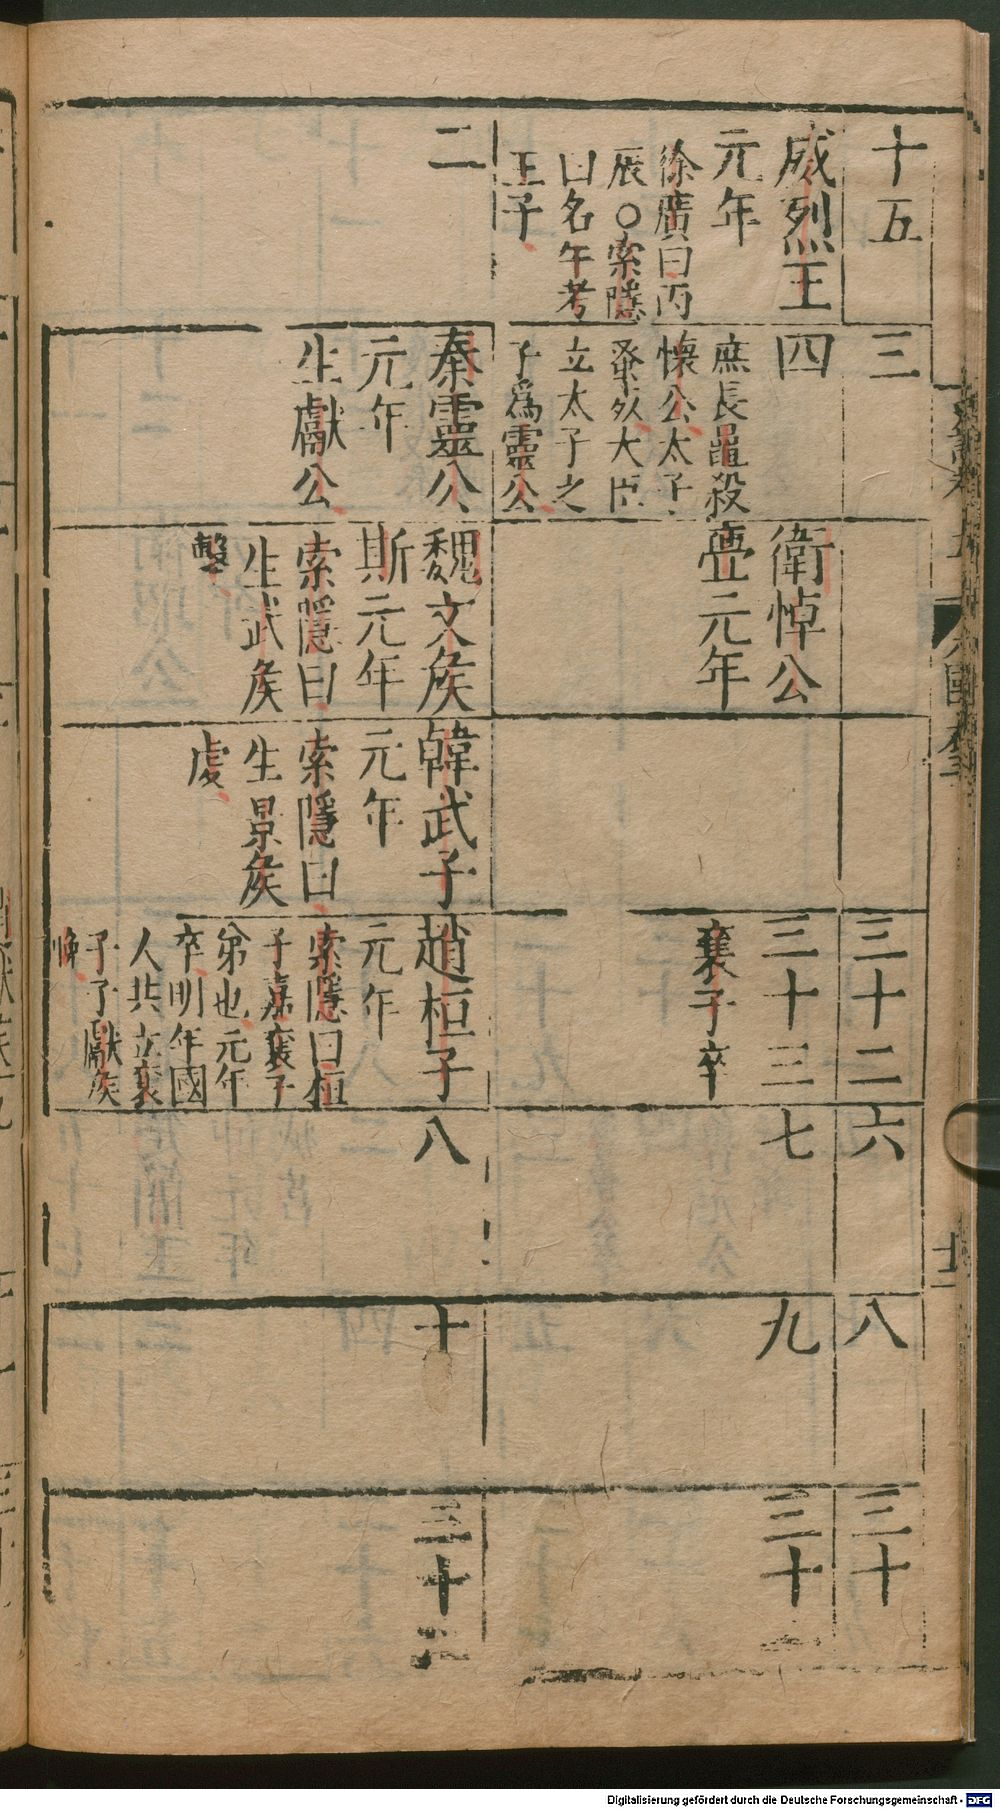 十五
三
三十二
六
八
三十
威烈王
元年
徐廣曰丙
辰○索隱
曰名午考
王子
四
庶長鼂殺
懷公太子
蚤死大臣
立太子之
子爲靈公
衛悼公
亹元年
三十三
襄子卒
七
九
三十
二
秦靈公
元年
生獻公
魏文矦
斯元年
索隱曰
生武矦
擊
韓武子
元年
索隱曰
生景矦
虔
趙桓子
元年
索隱曰桓
子嘉襄子
弟也元年
卒明年國
人共立襄
子子獻矦
晚
八
十
三十
六國
Digitalisierung gefördert durch die Deutsche Forschungsgemeinschaft - DFG